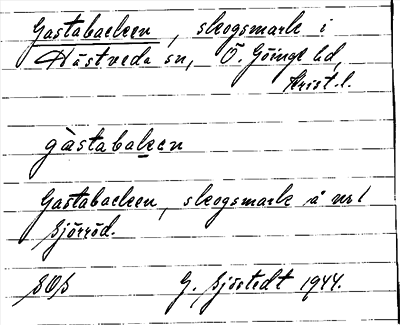 Gastabacken, skogsmark i
Hästveda sn, Ö. Göinge hd,
Krist. l.
gàstabaken
Gastabacken, skogsmark å nr 1
Sjörröd.
SOS G. Sjöstedt 1944.